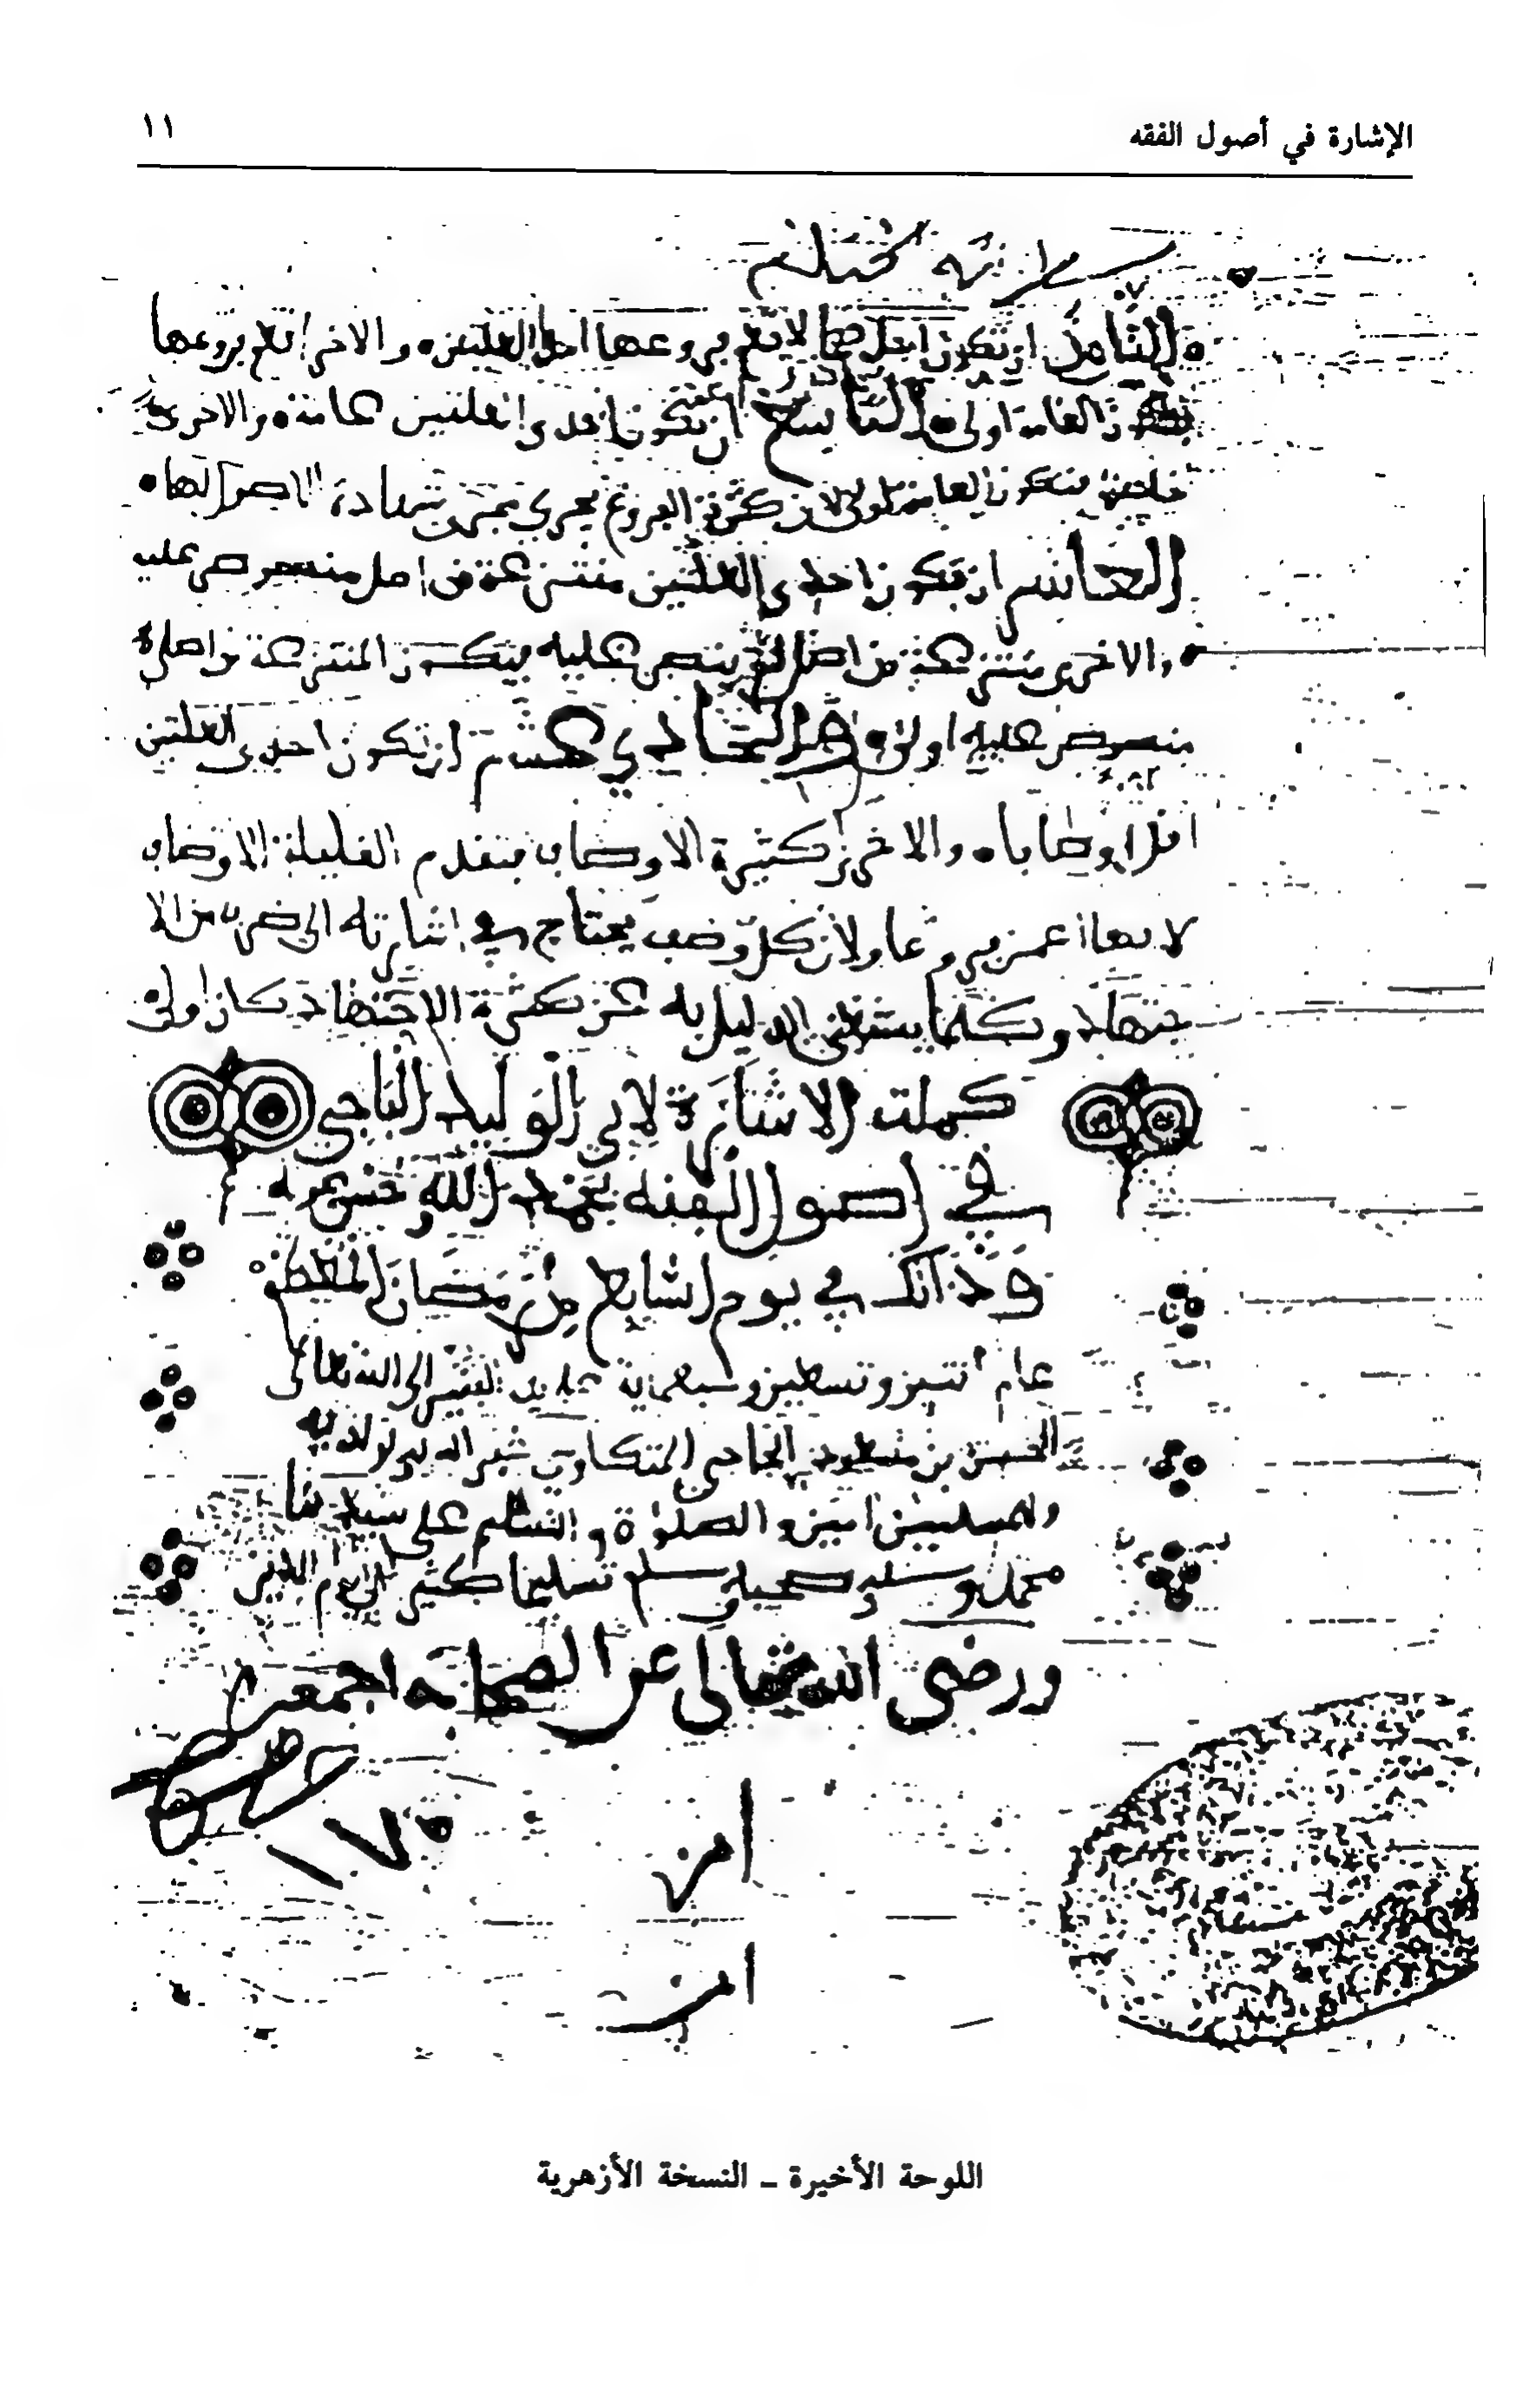 الإشارة في أصول الفقه
١١
الثامن ان تكون احداهما لا تعم فروعها احد العلتين والاخرى تعم فروعها
فتكون العامة اولى التاسع ان تكون احدى العلتين عامة والاخرى
خاصة فتكون العامة اولى لان كثرة الفروع يجري مجرى شهادة الاصول لها
العاشر ان تكون احدى العلتين منتزعة من اصل منصوص عليه
والاخرى منتزعة من اصل لم ينص عليه فتكون المنتزعة من اصل
منصوص عليه اولى الحادي عشر ان تكون احدى العلتين
اقل اوصافا والاخرى كثيرة الاوصاف فتقدم القليلة الاوصاف
لانها اعم فروعا ولان كل وصف يحتاج في اثباته الى ضرب من الا
جتهاد وكلما يستغني الدليل به عن كثرة الاجتهاد كان اولى
كملت الاشارة لابي الوليد الباجي
في اصول الفقه بحمد الله وحسن عونه
وذالك في يوم السابع من رمضان المعظم
عام اثنين وتسعين وسبعماية الى الله تعالى
الحسن بن مسعود غفر الله له ولوالديه
وللمسلمين امين والصلوة والسلم على سيدنا
محمد وصحبه وسلم تسليما كثيرا الى يوم الدين
ورضى الله تعالى عن الصحابه اجمعين
١٧٠
امين
امين
اللوحة الأخيرة ـ النسخة الأزهرية